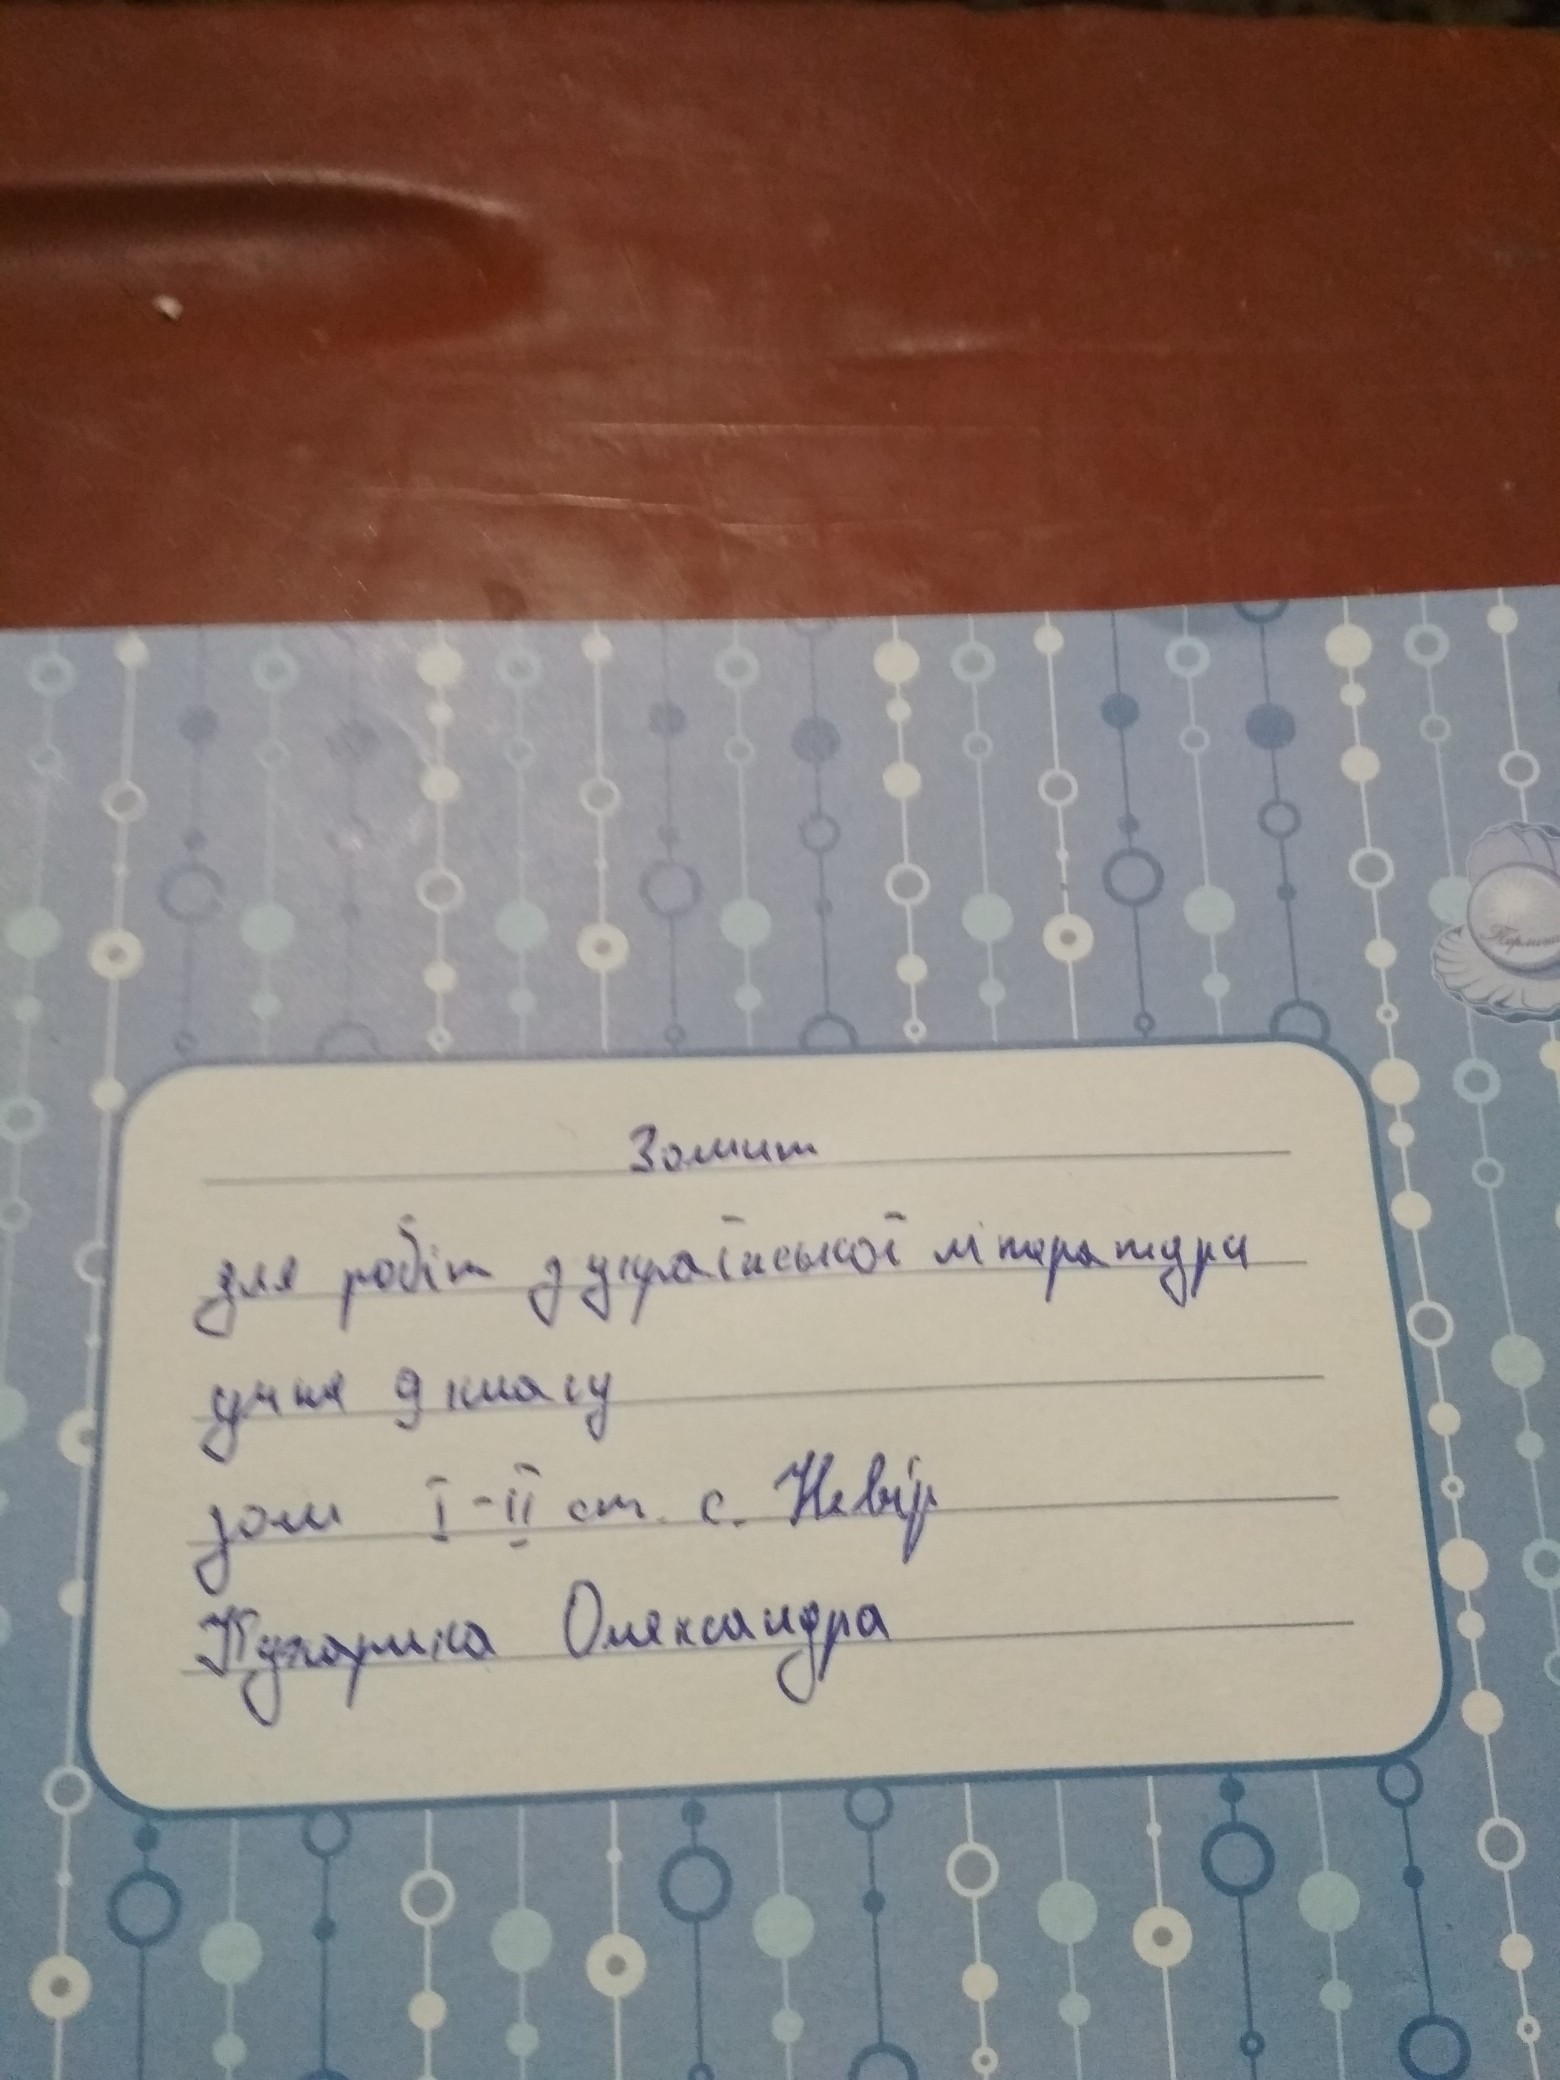 Зошит
для робіт з української література
учня 9 класу
зош I-II ст. с. Невір
Кухарика Олександра